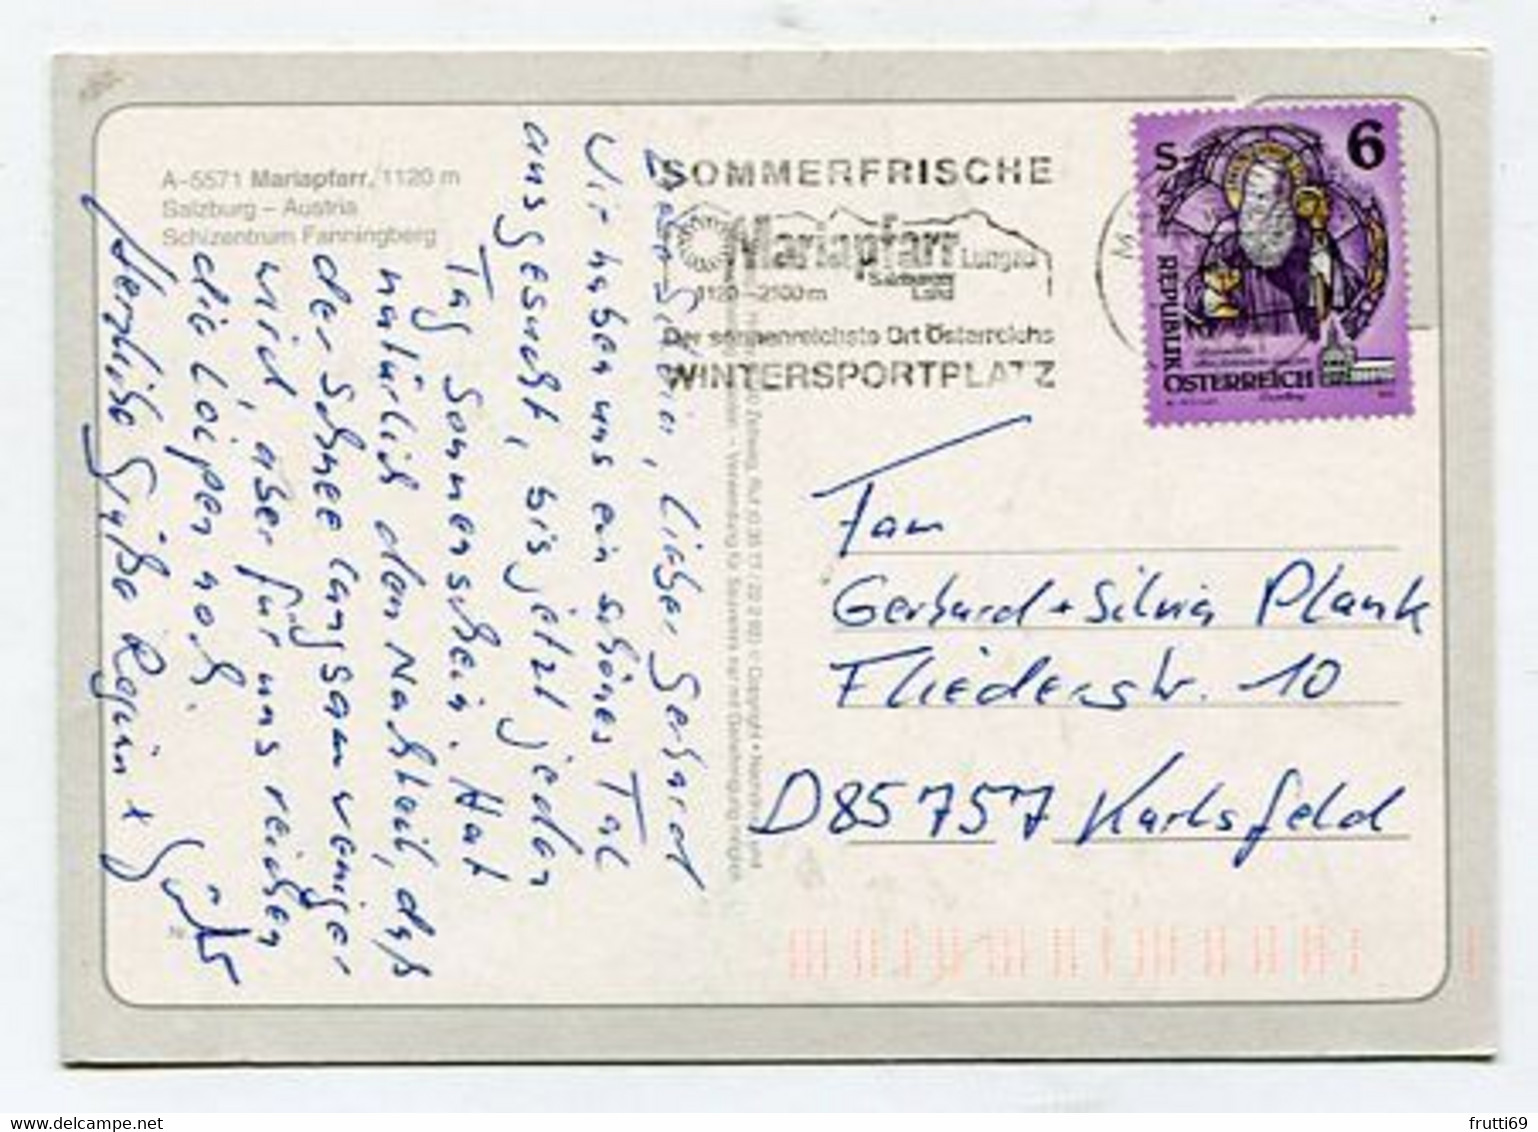 A-5571 Mariapfarr, 1120 m
Salzburg - Austria
Schizentrum Fanningberg
Liebe Silvia, lieber Gerhard
Wir haben uns ein schönes Tal
ausgesucht, bis jetzt jeden
Tag Sonnenschein. Hat
natürlich den Nachteil, daß
der Schnee langsam weniger
wird, aber für uns reichen
die Loipen noch.
Herzliche Grüße Regina +
SOMMERFRISCHE
Mariapfarr Lungau
Salzburger
Land
1120-2100m
Der sonnenreichste Ort Österreichs
WINTERSPORTPLATZ
S 6
REPUBLIK
ÖSTERREICH
Fam
Gerhard + Silvia Plank
Fliederstr. 10
D 85757 Karlsfeld
frutti69